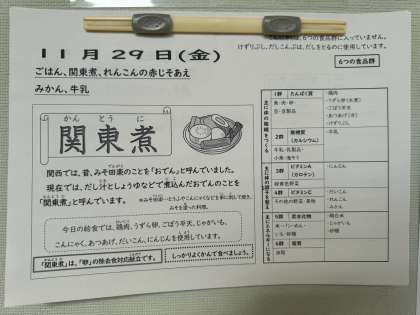 11月29日(金)
ごはん、関東煮、れんこんの赤じそあえ
みかん、牛乳
かんとうに
関東煮
関西では、昔、みそ田楽のことを「おでん」と呼んでいました。
現在では、だし汁としょうゆなどで煮込んだおでんのことを
「関東煮」と呼んでいます。
今日の給食では、鶏肉、うずら卵、ごぼう平天、じゃがいも、
こんにゃく、あつあげ、だいこん、にんじんを使用しています。
「関東煮」は、「卵」の除去食対応献立です。
しっかりよくかんで食べましょう。
、6つの食品群に入っていません。
けずりぶし、だしこんぶは、だしをとるのに使用しています。
6つの食品群
1群 たんぱく質
魚・肉・卵・
豆・豆製品
・鶏肉
・うずら卵(水煮)
・ごぼう平天
・あつあげ(冷)
・けずりぶし
2群 無機質
(カルシウム)
牛乳・乳製品・
小魚・海そう
・牛乳
3群 ビタミンA
(カロテン)
緑黄色野菜
・にんじん
4群 ビタミンC
その他の野菜・果物
・だいこん
・れんこん
・みかん
5群 炭水化物
米・パン・めん・
いも・砂糖
・精白米
・じゃがいも
・砂糖
6群 脂質